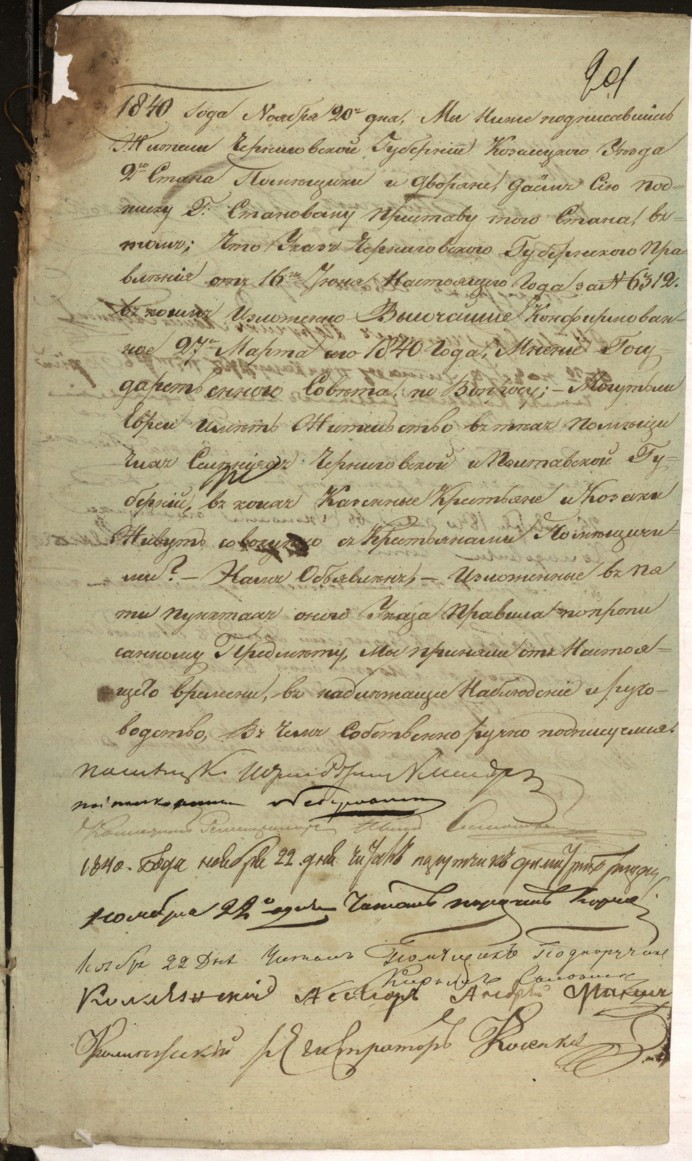 201
1840 Года Ноября 20го дня, Мы ниже подписавшиеся
Жители Черниговской Губерніи Козелецкого Уезда
2го Стана Помещики и дворяне, даемъ Сію под-
писку Г. Становому Приставу того Стана, въ
томъ; Что Указъ Черниговского Губернского Пра-
вленія отъ 16го Июня Настоящего Года за № 6312.
въ коемъ Изложено Высочайше Конфирмован-
ное 27го Марта его 1840 Года, Мненіе Госу-
дарственного Совета, по Вопросу; – Могутъ ли
Евреи Иметь Жительство въ техъ Помещи-
чихъ Селеніяхъ Черниговской и Полтавской Гу-
берній, въ коихъ Казенные Крестьяне и Козаки
Живутъ совокупно съ Крестьянами Помещичи-
ми? – Намъ Объявленъ, – Изложенные въ пя-
ти пунктахъ оного Указа Правила по пропи-
санному Предмету, Мы приняли отъ Настоя-
щего времени, въ надлежащее Наблюденіе и руко-
водство, Въ чемъ Собственно ручно подписуемся.
1840. Года ноября 22 дня читалъ порутчикъ
ноября 22го дня Читалъ
ноябр 22 Дня Читалъ Помещикъ Подпоручикъ
Колежскій Асесоръ Андрей
Колежскій Регистраторъ